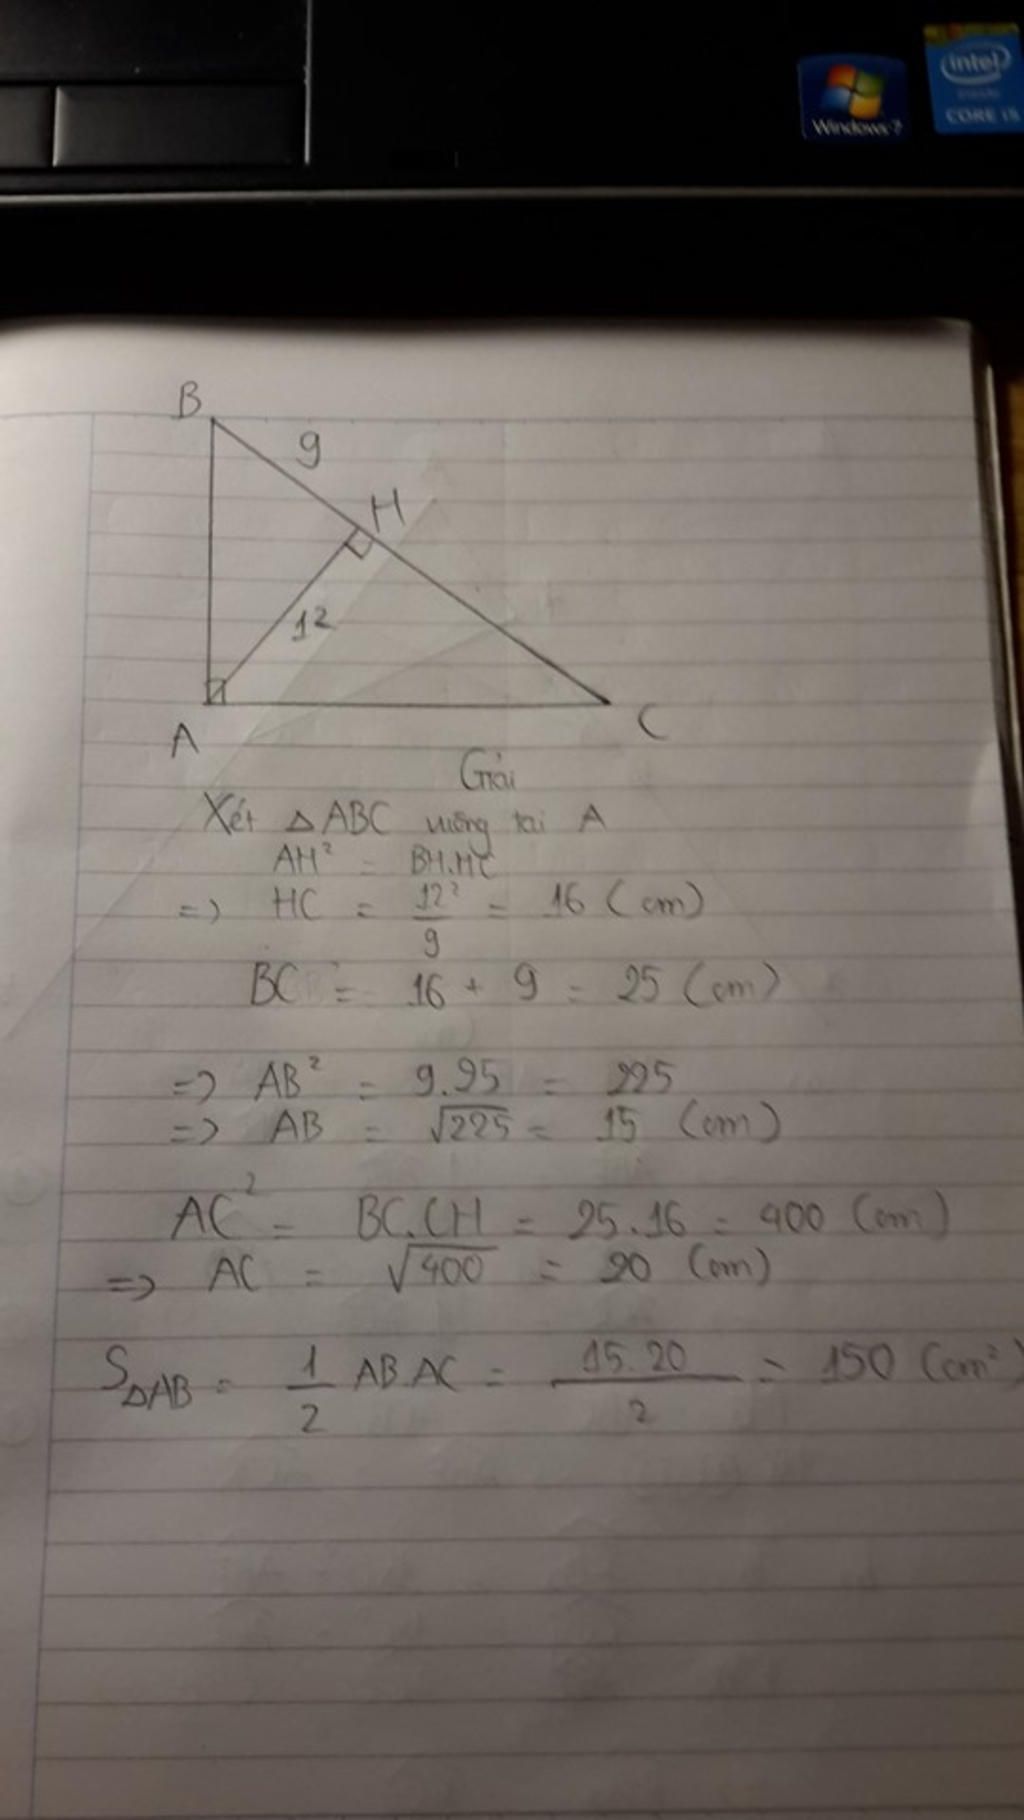 Windows 7
intel
inside
CORE i5
B
9
H
12
A
C
Giải
Xét ΔABC vuông tại A
AH² = BH.HC
=> HC = 12²/9 = 16 (cm)
BC = 16 + 9 = 25 (cm)
=> AB² = 9.25 = 225
=> AB = √225 = 15 (cm)
AC² = BC.CH = 25.16 = 400 (cm)
=> AC = √400 = 20 (cm)
SΔAB = 1/2 AB.AC = 15.20/2 = 150 (cm²)